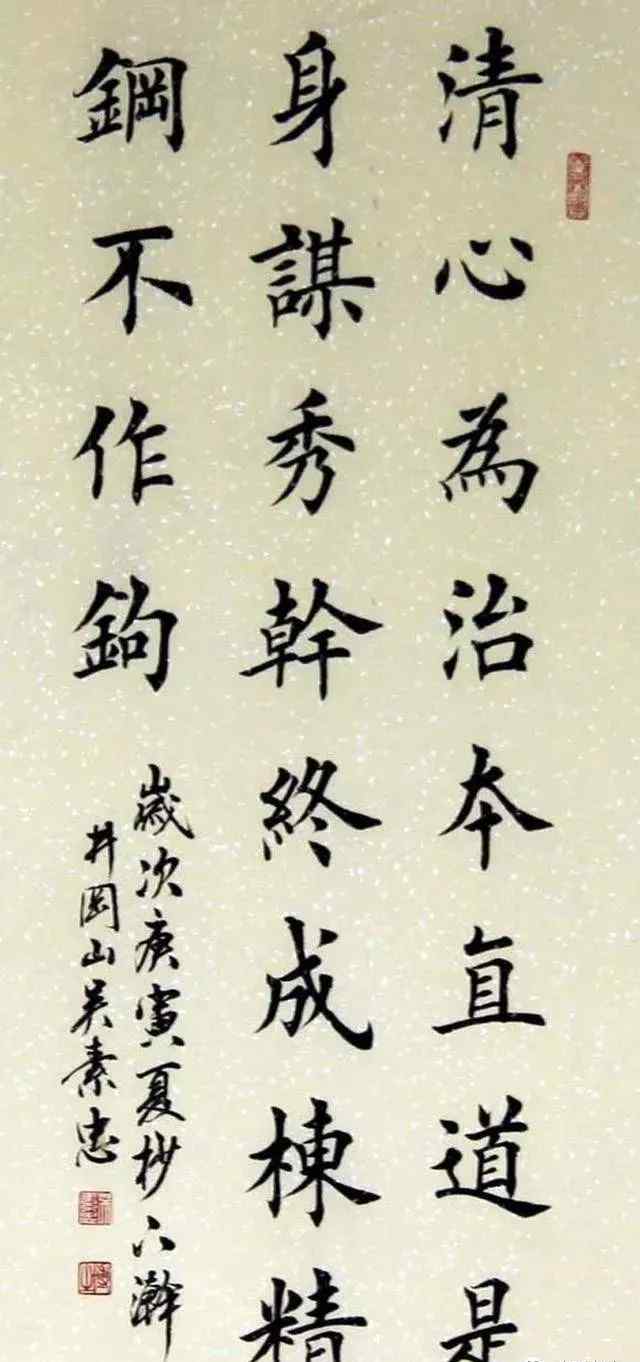 清心為治本直道是
身謀秀幹終成棟精
鋼不作鉤
歲次庚寅夏杪六瀚
井岡山吴素忠